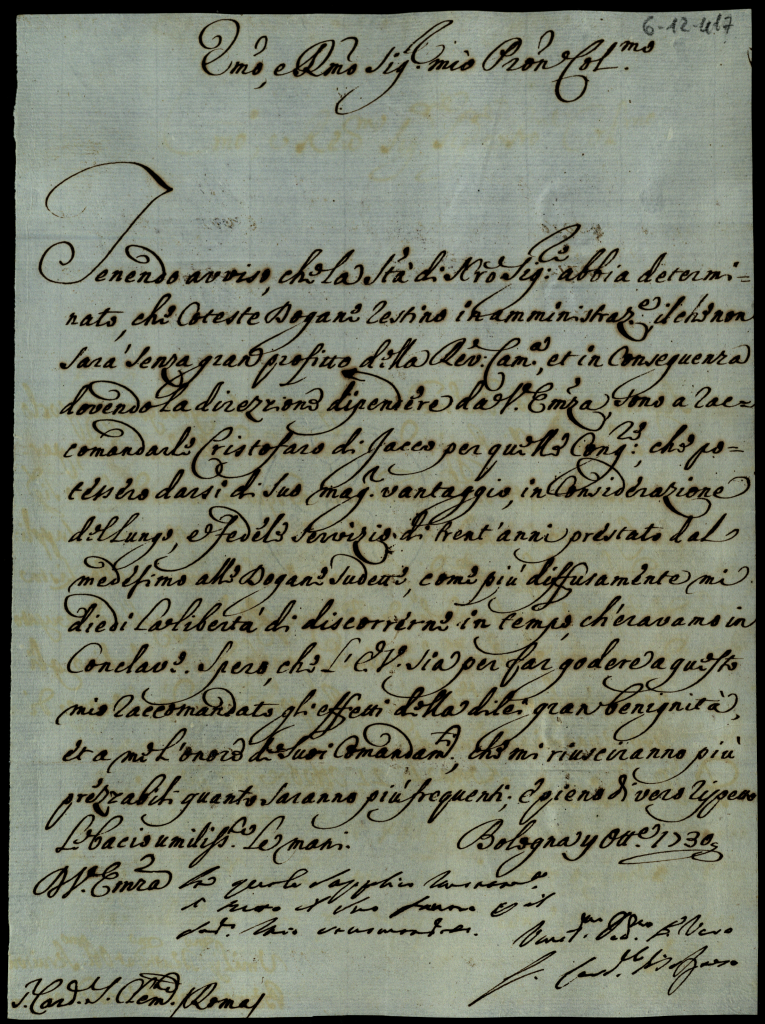 6-12-417
Emo, e Rmo Sig.r mio Pron Col.mo
Tenendo avviso, che la Stà di Nro Sig.re abbia determi=
nato, che Coteste Dogane restino in amministraz.e, il che non
sarà senza gran profitto della Rev: Cam.a, et in Conseguenza
dovendo la direzzione dipendere da V. Emza, sono a rac=
comandarle Cristofaro di Jacco per quelle Cong.re, che po=
tessero darsi di suo mag.r vantaggio, in Considerazione
del lungo, e fedele servizio di trent'anni prestato dal
medesimo alle Dogane sudette, come più diffusamente mi
diedi la libertà di discorrerne in tempo, ch'eravamo in
Conclave. Spero, che l'E. V. sia per far godere a questo
mio raccomandato gli effetti della di lei gran benignità,
et a me l'onore de suoi Comandam.ti, che mi riusciranno più
prezzabili quanto saranno più frequenti; e pieno di vero rispetto
Le bacio umiliss.e Le mani. Bologna 4 Ott.e 1730
D V. Emza la quale supplico
il suo favore
sud. mio raccomandato.
Card.
S. Card. S. Clem.te /Roma/